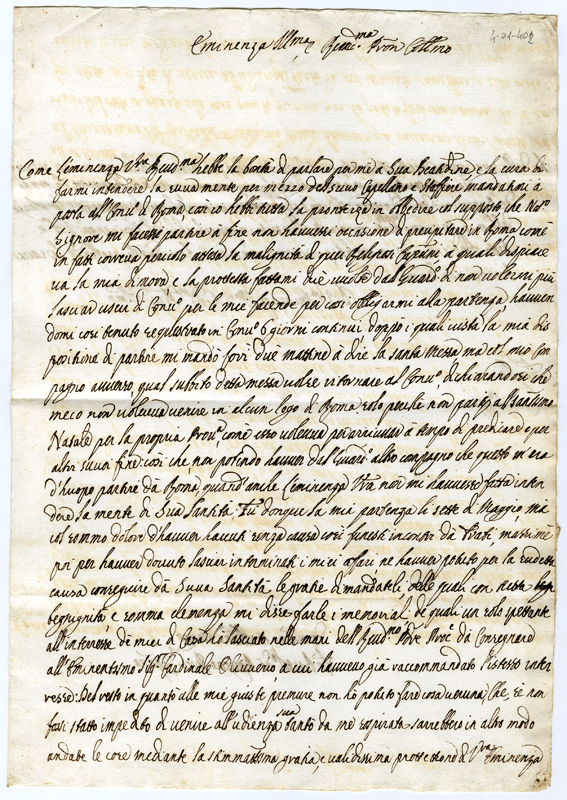 4-01-402
Eminenza Ill.ma e Rev.ma Pron Coll.mo
Come l'eminenza V.ra Reud.ma hebbe la bontà di parlare per me à Sua Beatd.ine, e la cura di
farmi intendere la suua mente per mezzo del suuo Capellano e Staffiere mandatimi à
posta all'Conu.o di Roma, così io hebbi tutta la prontezza in obbedire col supposto che Nro.
Signore mi facesse partire à fine non hauuessi occasione di precipitare in Roma com'è
in fatti correua pericolo attesa la malignità di quei Religiosi Capani à quali dispiace
ua la mia dimora e la protesta fattami due uuolte dal Guard.o di non uolermi più
lasciar uscir di Conu.o per le mie facende per così obligarmi alla partenza, hauuen
domi così tenuto sequestrato in Conu.o 6 giorni continui doppò i quali uista la mia dis
positione di partire mi mandò fori due mattine à dire la santa messa ma col mio Com
pagno auuerso, qual subbito detta messa uolse ritornare al Conu.o dichiarandosi che
meco non uoleuua uenire in alcun logo di Roma solo perche non partij al Santissimo
Natale per la propria Prou.a com'esso uoleuua per arriuuar à tempo di predicare e per
altri suuoi fini: così che non potendo hauuer dal Guard.o altro compagno che questo m'era
d'huopo partire da Roma, quand'anche l'eminenza V.ra non mi hauuesse fatta inten
dere la mente di Sua Santità. Fù dongue la mia partenza li sette di Maggio, mà
col sommo dolore d'hauuer hauuti senza causa così funesti incontri da Frati, massime
poi per hauuer douuto lasciar interminati i miei affari ne hauuer potuto per la sudetta
causa conseguire dà Suua Santità le gratie di mandateli, delle quali con tutta
benignità e somma clemenza mi disse farle i memoriali: de quali un solo spettante
all'interesse de miei di Casa hò lasciato nelle mani dell Reud.mo Pdre Proc.e da Consegnarsi
all'Eminentissimo Sig.r Cardinale Oliuuerio, à cui hauueuo già raccommandato l'istesso inter
resse: Del resto in quanto alle mie giuste premure non hò potuto fare cosa ueruna, che, se non
fossi stato impedito di uenire all'udienza sua santo da me sospirata sarrebbero in altro modo
andate le cose mediante la stimmatissima gratia, e ualidissima protettione di V.ra Eminenza